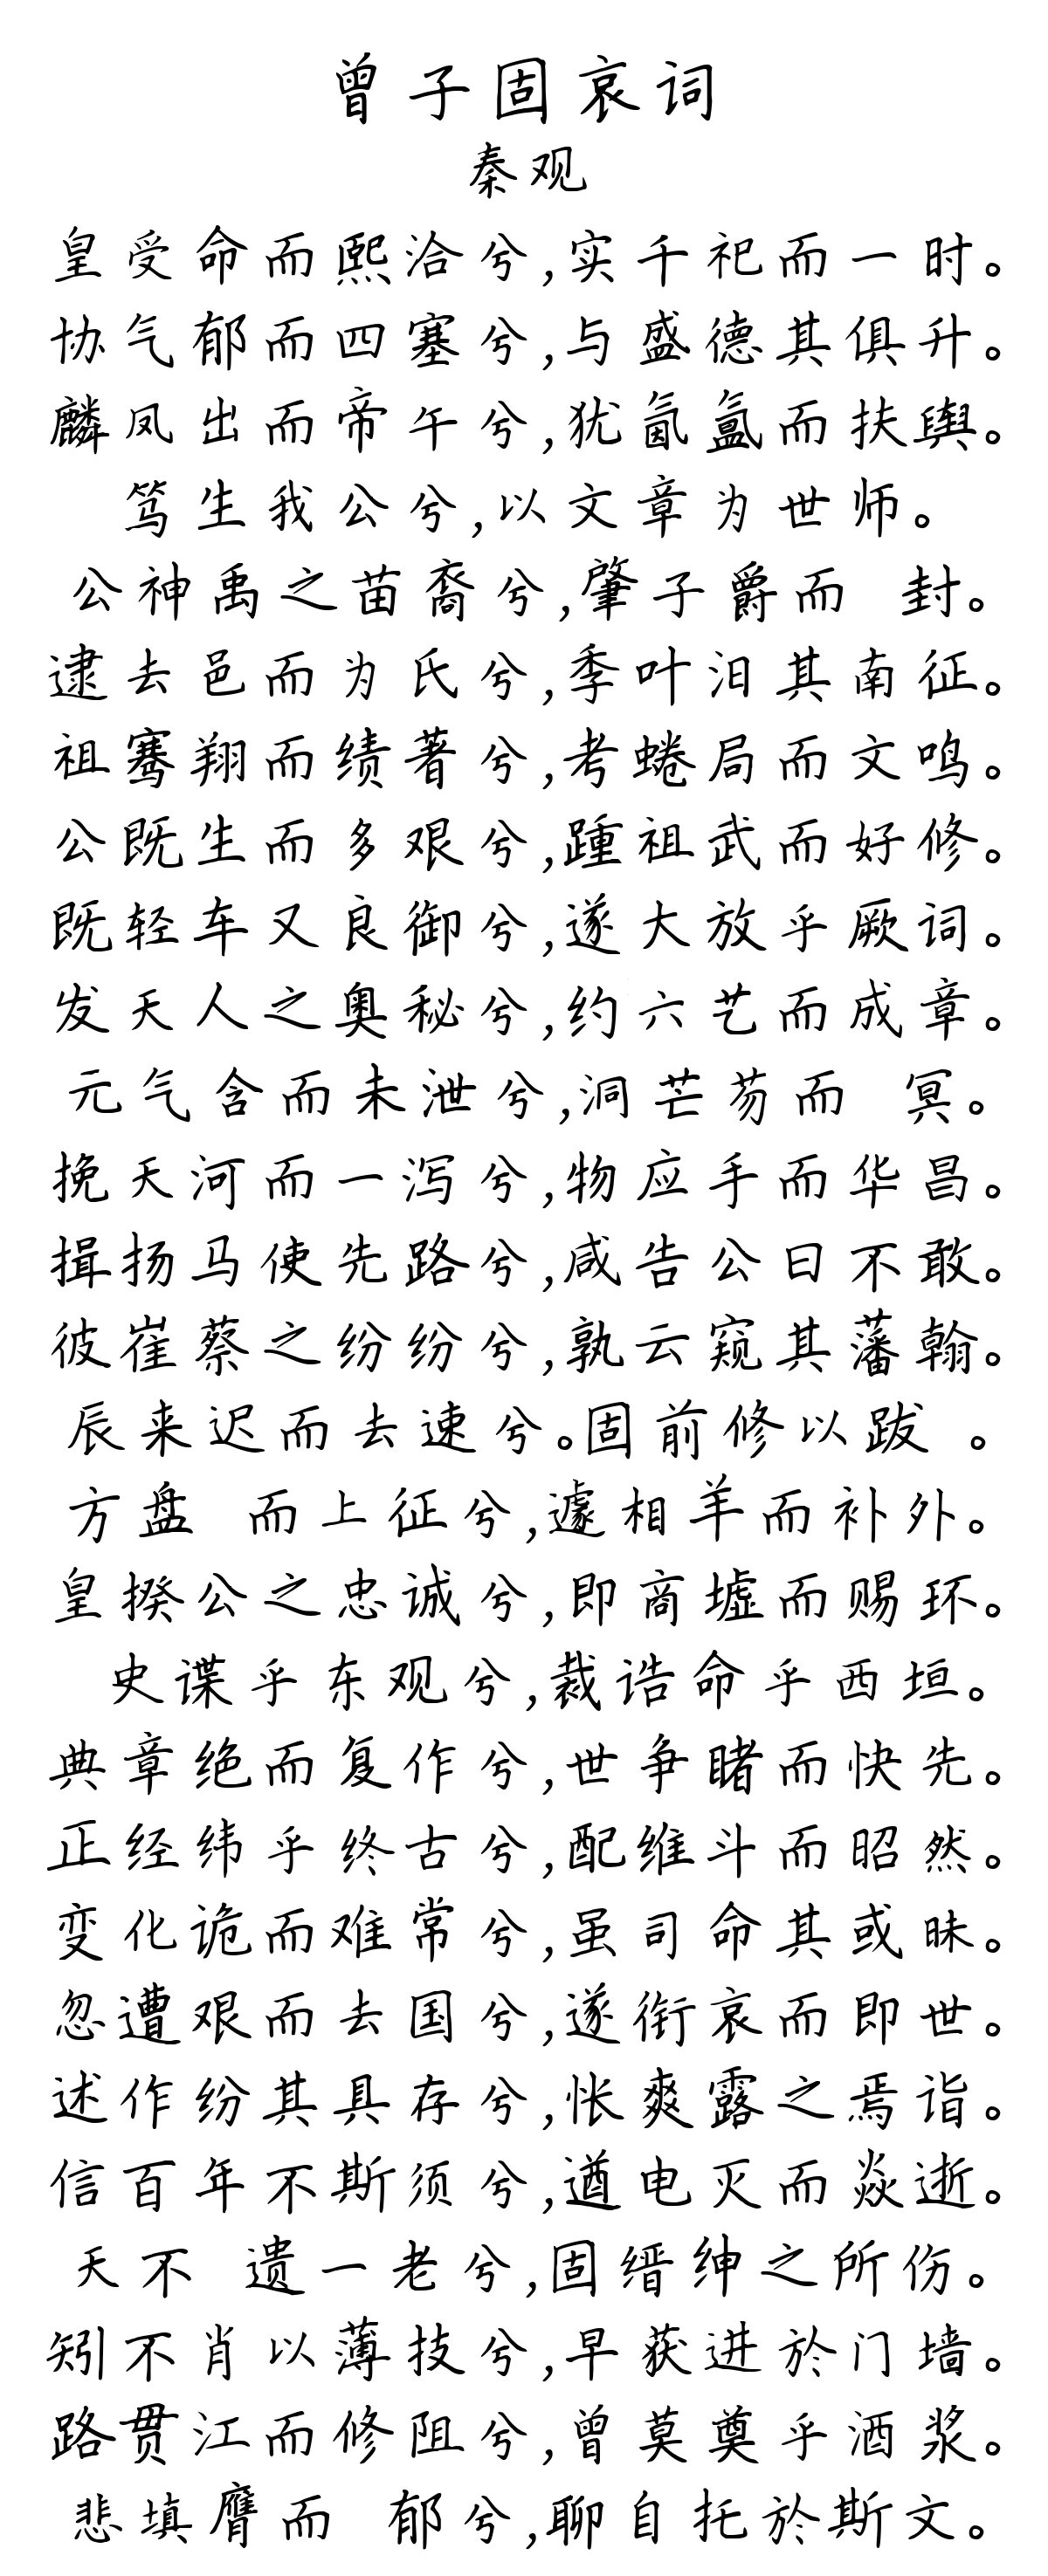 曾子固哀词
秦观
皇受命而熙洽兮,实千祀而一时。
协气郁而四塞兮,与盛德其俱升。
麟凤出而帝午兮,犹氤氲而扶舆。
笃生我公兮,以文章为世师。
公神禹之苗裔兮,肇子爵而 封。
逮去邑而为氏兮,季叶汨其南征。
祖骞翔而绩著兮,考蜷局而文鸣。
公既生而多艰兮,踵祖武而好修。
既轻车又良御兮,遂大放乎厥词。
发天人之奥秘兮,约六艺而成章。
元气含而未泄兮,洞芒芴而 冥。
挽天河而一泻兮,物应手而华昌。
揖扬马使先路兮,咸告公曰不敢。
彼崔蔡之纷纷兮,孰云窥其藩翰。
辰来迟而去速兮。固前修以跋 。
方盘 而上征兮,遽相羊而补外。
皇揆公之忠诚兮,即商墟而赐环。
史谍乎东观兮,裁诰命乎西垣。
典章绝而复作兮,世争睹而快先。
正经纬乎终古兮,配维斗而昭然。
变化诡而难常兮,虽司命其或昧。
忽遭艰而去国兮,遂衔哀而即世。
述作纷其具存兮,怅爽露之焉诣。
信百年不斯须兮,遒电灭而焱逝。
天不 遗一老兮,固缙绅之所伤。
矧不肖以薄技兮,早获进於门墙。
路贯江而修阻兮,曾莫奠乎酒浆。
悲填膺而 郁兮,聊自托於斯文。